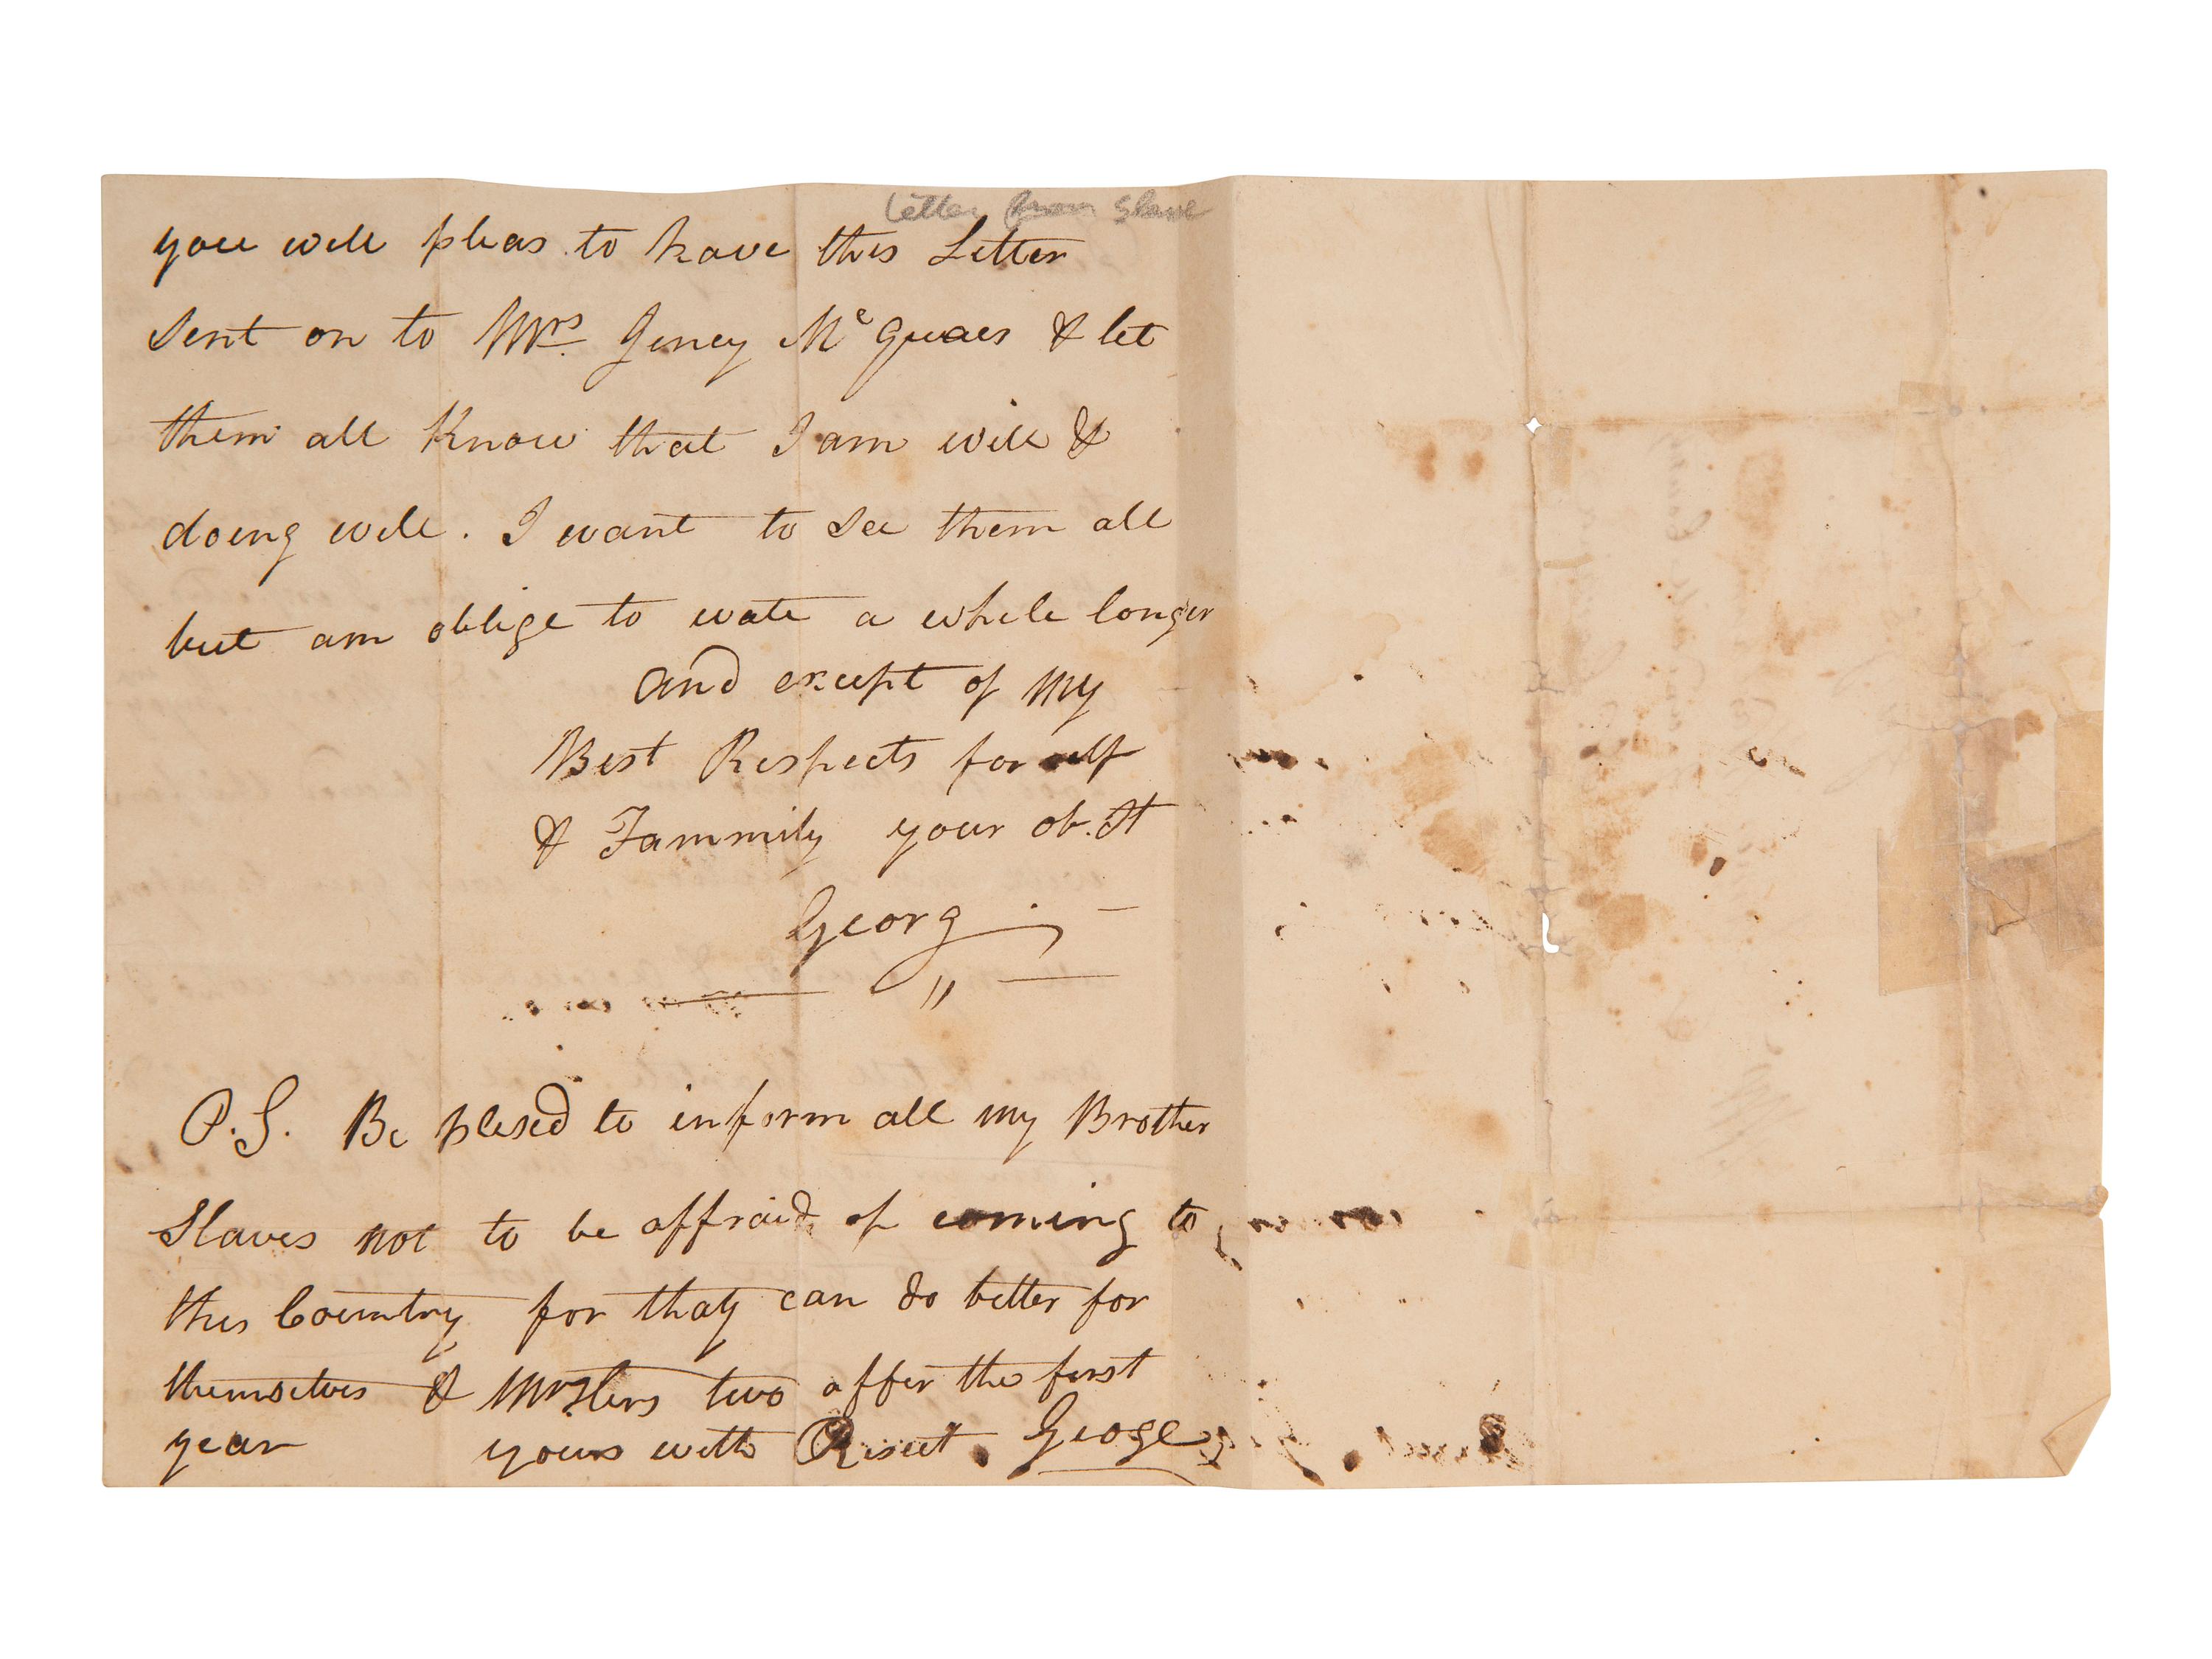 Letter from Slave
you will pleas to have this Letter
sent on to Mrs Jency Mc Guaes & let
them all Know that I am will &
doing will. I want to see them all
but am oblige to wate a while longer
and except of My
Best Respects for self
& Fammily your ob. St
Georg
P.S. Be plesed to inform all my Brother
Slaves not to be affraid of coming to
this Country for thay can do better for
themselves & Masters two after the first
year yours with Resect. Geoge